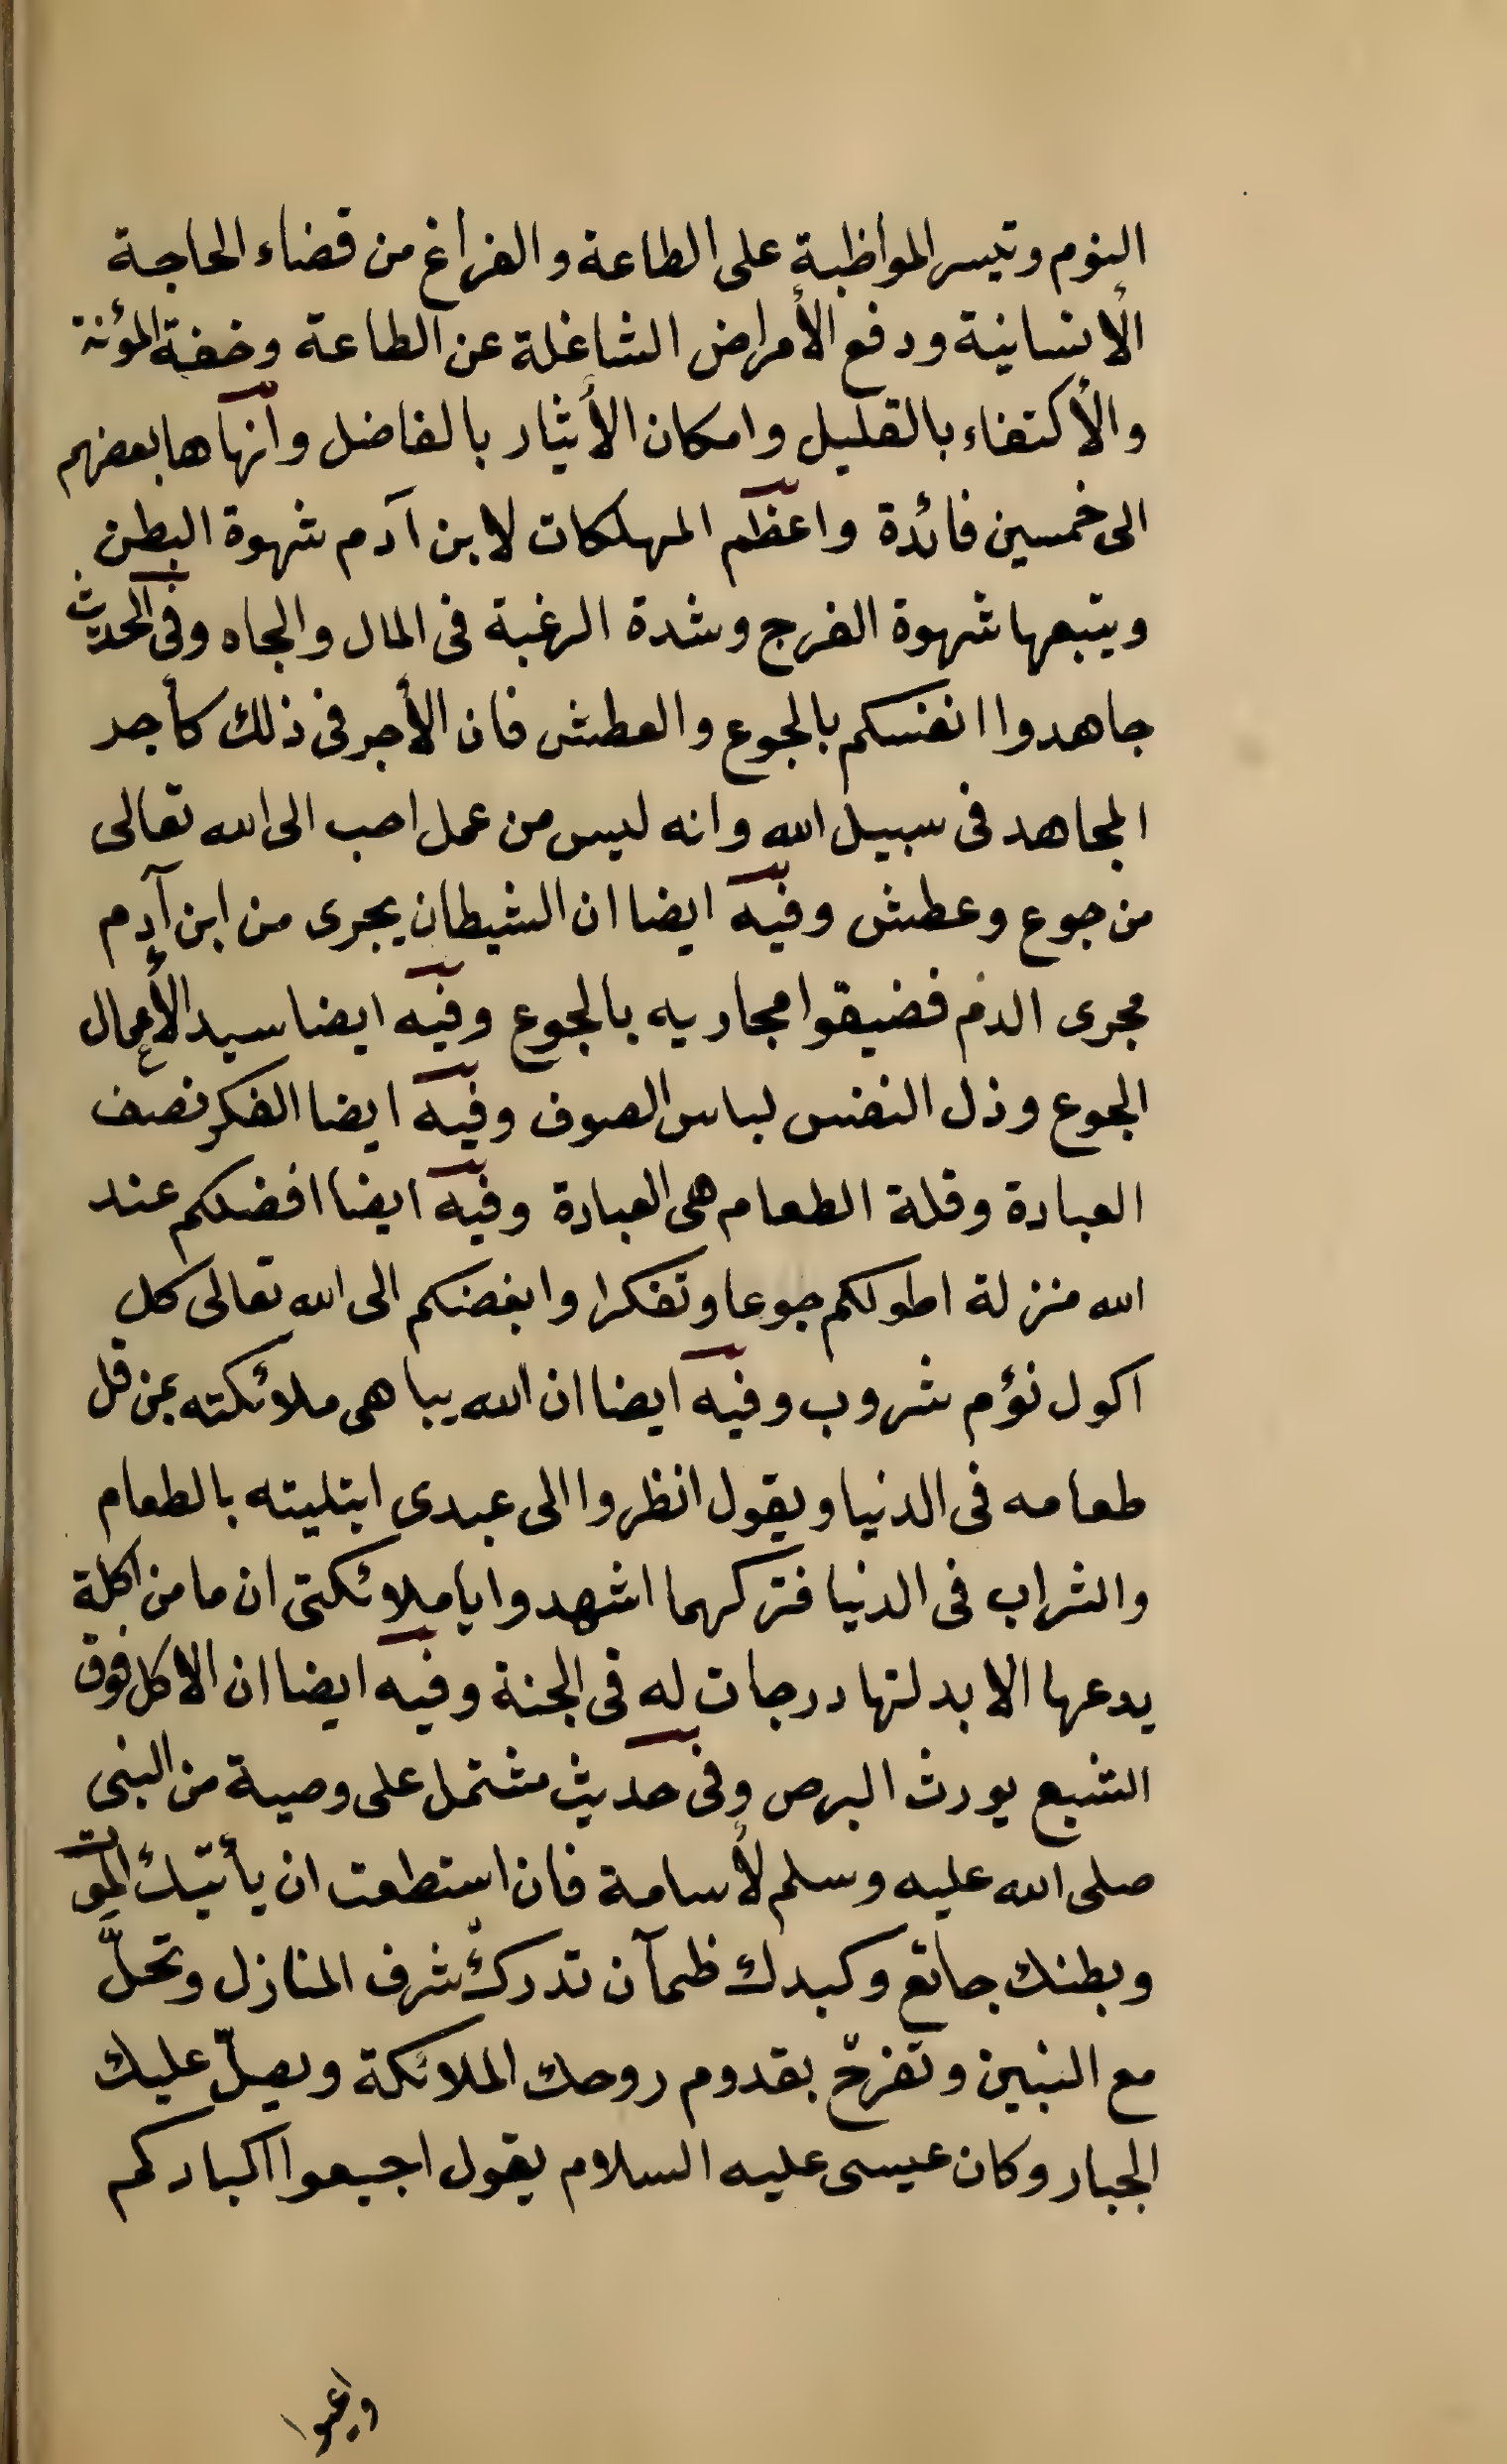 النوم وتيسر المواظبة على الطاعة والفراغ من قضاء الحاجة
الإنسانية ودفع الأمراض الشاغلة عن الطاعة وخفة المؤنة
والأكتفاء بالقليل وامكان الأيثار بالفاضل وانهاها بعضهم
الى خمسين فائدة واعظم المهلكات لابن آدم شهوة البطن
ويتبعها شهوة الفرج وشدة الرغبة فى المال والجاه وفى الحديث
جاهدوا انفسكم بالجوع والعطش فان الأجر فى ذلك كأجر
المجاهد فى سبيل الله وانه ليس من عمل احب الى الله تعالى
من جوع وعطش وفيه ايضا ان الشيطان يجرى من ابن آدم
مجرى الدم فضيقوا مجاريه بالجوع وفيه ايضا سيد الأعمال
الجوع وذل النفس لباس الصوف وفيه ايضا الفكر نصف
العبادة وقلة الطعام هى العبادة وفيه ايضا افضلكم عند
الله منزلة اطولكم جوعا وتفكرا وابغضكم الى الله تعالى كل
اكول نؤم شروب وفيه ايضا ان الله يباهى ملائكته بمن قل
طعامه فى الدنيا ويقول انظروا الى عبدى ابتليته بالطعام
والشراب فى الدنيا فتركهما اشهدوا يا ملائكتى ان ما من اكلة
يدعها الا بدلتها درجات له فى الجنة وفيه ايضا ان الاكل فوق
الشبع يورث البرص وفى حديث مشتمل على وصية من النبى
صلى الله عليه وسلم لأسامة فان استطعت ان يأتيك الموت
وبطنك جائع وكبدك ظمآن تدرك شرف المنازل وتحلّ
مع النبين وتفرح بقدوم روحك الملائكة ويصلّ عليك
الجبار وكان عيسى عليه السلام يقول اجيعوا اكبادكم